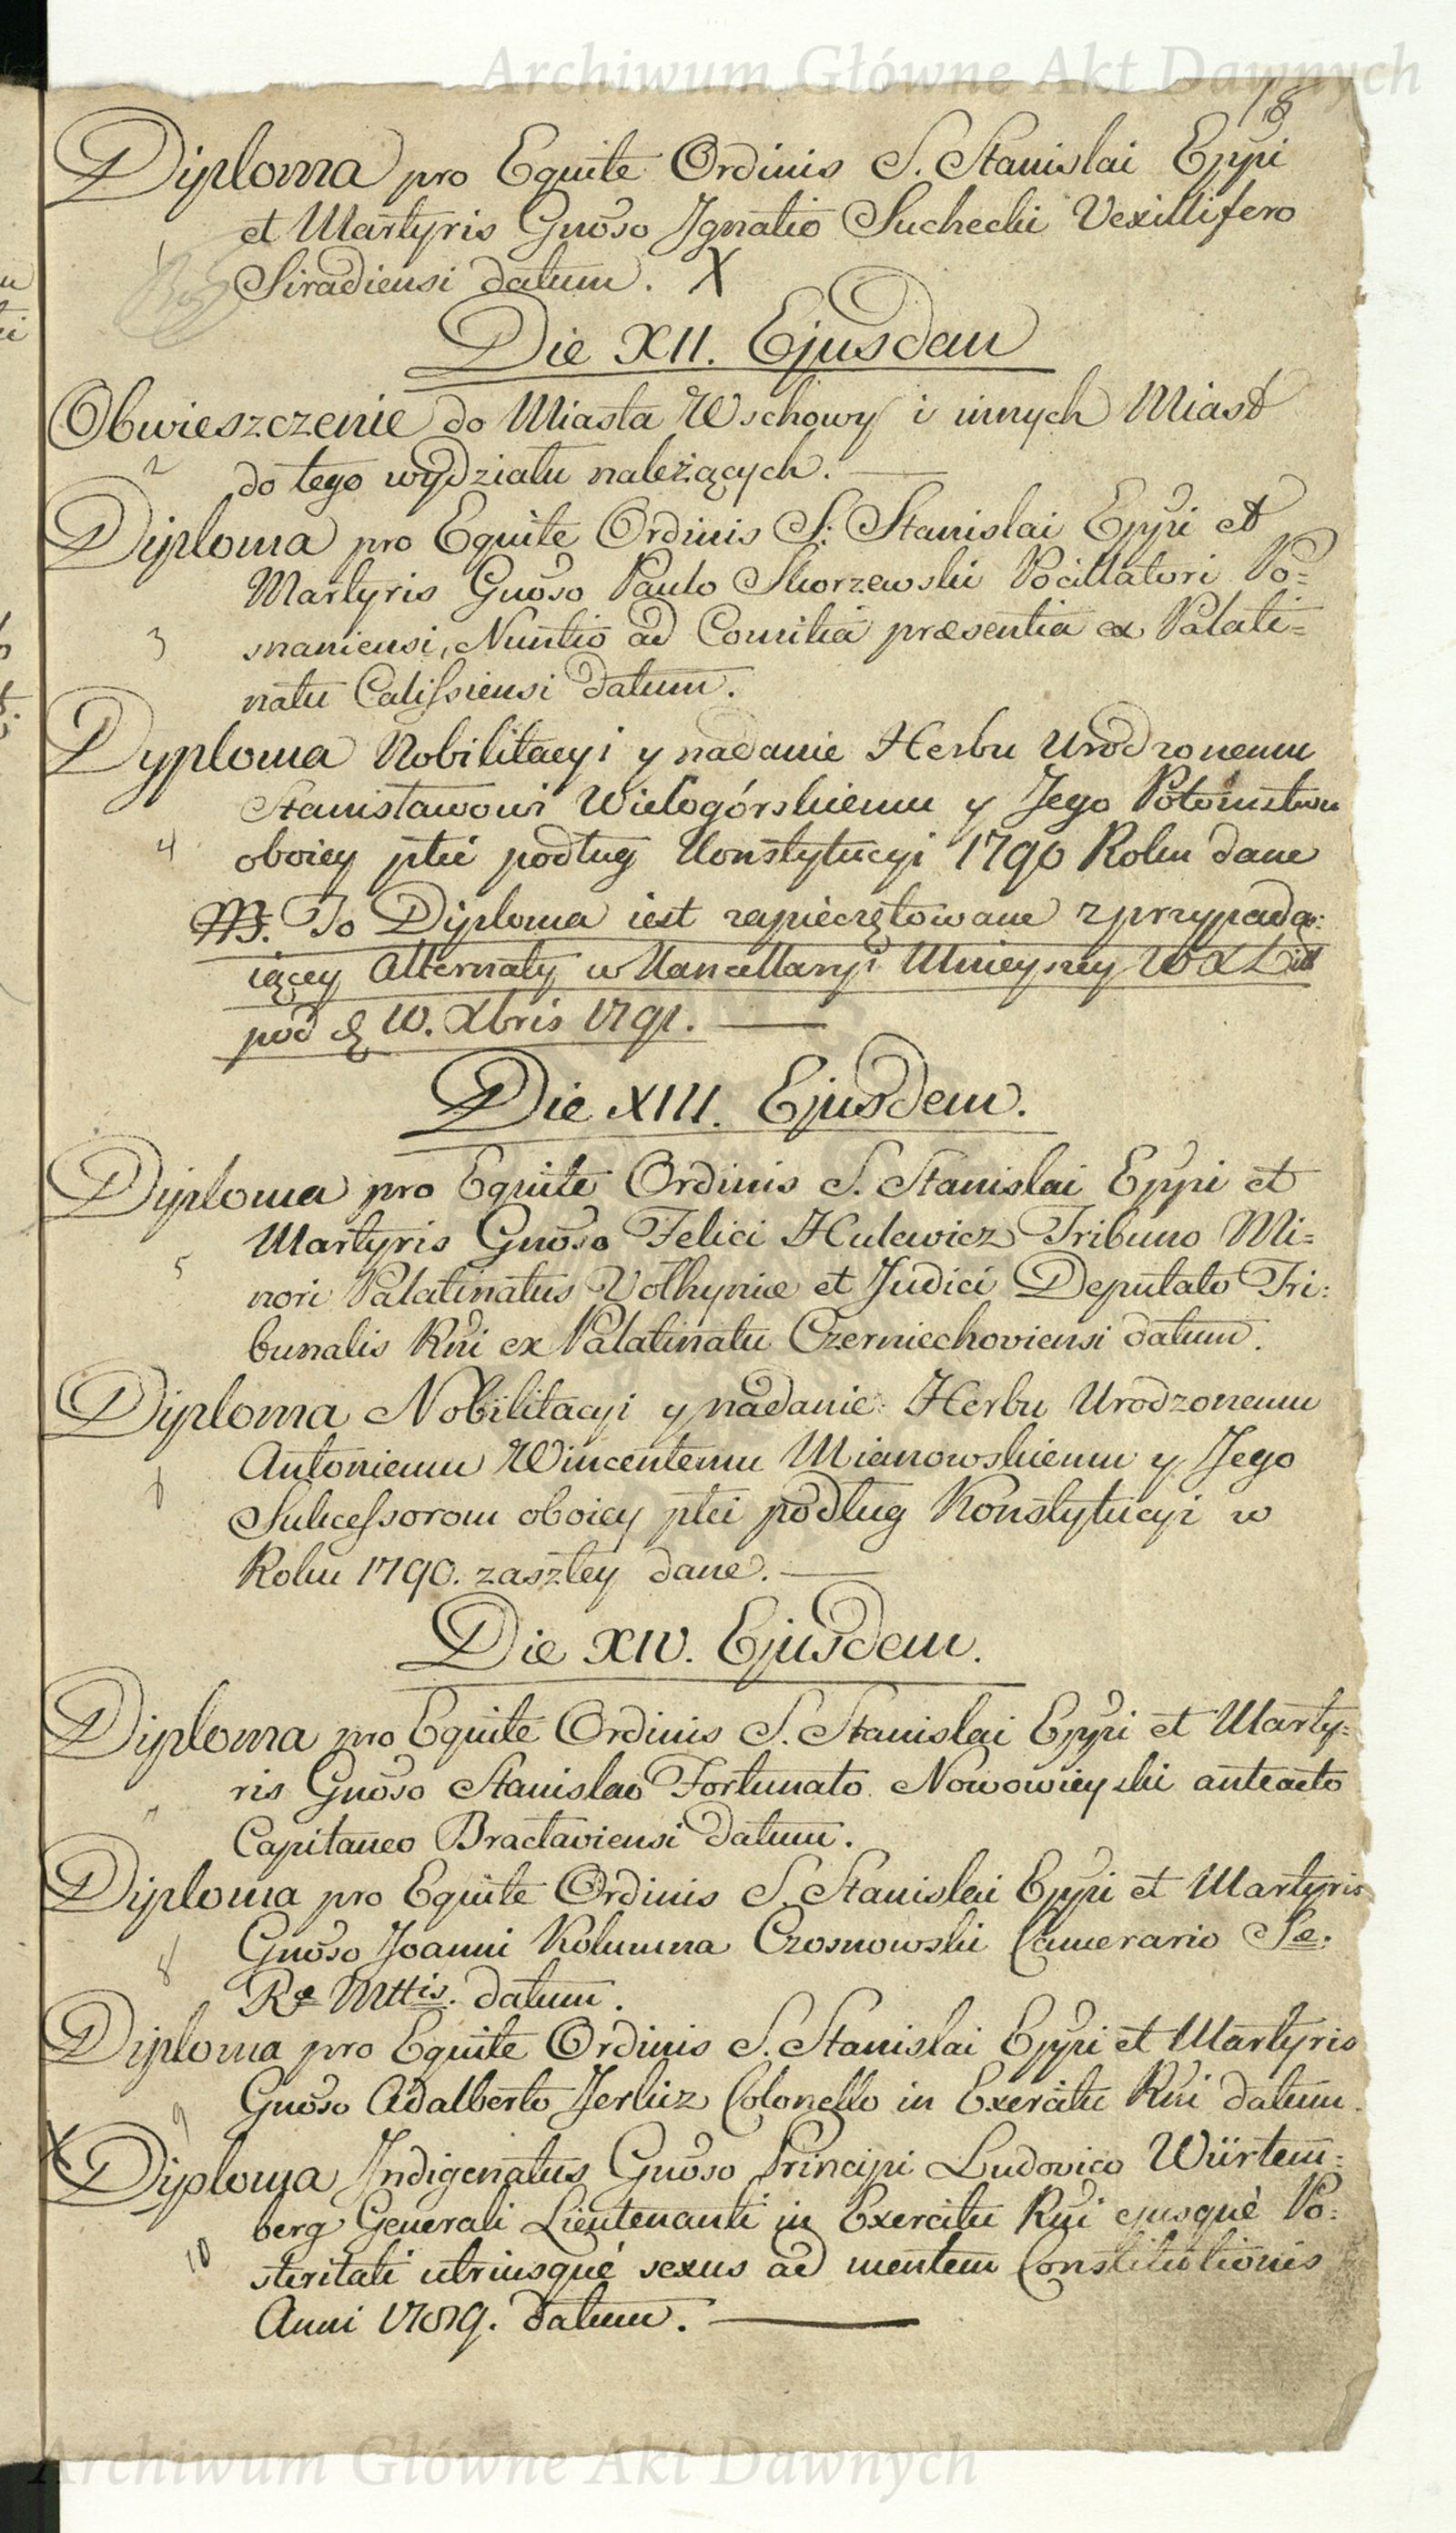 Archiwum Główne Akt Dawnych
18
Diploma pro Equite Ordinis S. Stanislai Eppi
et Martyris Gnoso Ignatio Suchecki Vexillifero
1
Siradiensi datum. X
Die XII. Ejusdem
Obwieszczenie do Miasta Wschowy i innych Miast
2
do tego wydziału należących.
Diploma pro Equite Ordinis S. Stanislai Eppi et
Martyris Gnoso Paulo Skorzewski Pocillatori Po=
3
snaniensi, Nuntio ad Comitia præsentia ex Palati=
natu Calissiensi datum.
Dyploma Nobilitacyi y nadanie Herbu Urodzonemu
Stanisławowi Wielogórskiemu y Jego Potomstwu
4
oboiey płci podług Konstytucyi 1790 Roku dane
To Diploma iest zapieczętowane z przypada=
iącey Alternaty w Kancellaryi Mnieyszey WXLit
pod d 10. Xbris 1791.
Die XIII. Ejusdem.
Diploma pro Equite Ordinis S. Stanislai Eppi et
Martyris Gnoso Felici Hulewicz Tribuno Mi=
5
nori Palatinatus Volhyniæ et Judici Deputato Tri=
bunalis Rni ex Palatinatu Czerniechoviensi datum.
Diploma Nobilitacyi y nadanie Herbu Urodzonemu
Antoniemu Wincentemu Mianowskiemu y Jego
6
Sukcessorom oboiey płci podług Konstytucyi w
Roku 1790. zaszłey dane.
Die XIV. Ejusdem.
Diploma pro Equite Ordinis S. Stanislai Eppi et Marty=
ris Gnoso Stanislao Fortunato Nowowieyski anteacto
7
Capitaneo Braclaviensi datum.
Diploma pro Equite Ordinis S. Stanislai Eppi et Martyris
Gnoso Joanni Kolumna Czosnowski Camerario Sæ.
8
Ræ Mttis. datum.
Diploma pro Equite Ordinis S. Stanislai Eppi et Martyris
Gnoso Adalberto Jerlicz Colonello in Exercitu Rni datum.
9
X Diploma Indigenatus Gnoso Principi Ludovico Würtem=
berg Generali Lieutenanti in Exercitu Rni ejusque Po=
10
steritati utriusque sexus ad mentem Constitutionis
Anni 1789. datum.
Archiwum Główne Akt Dawnych